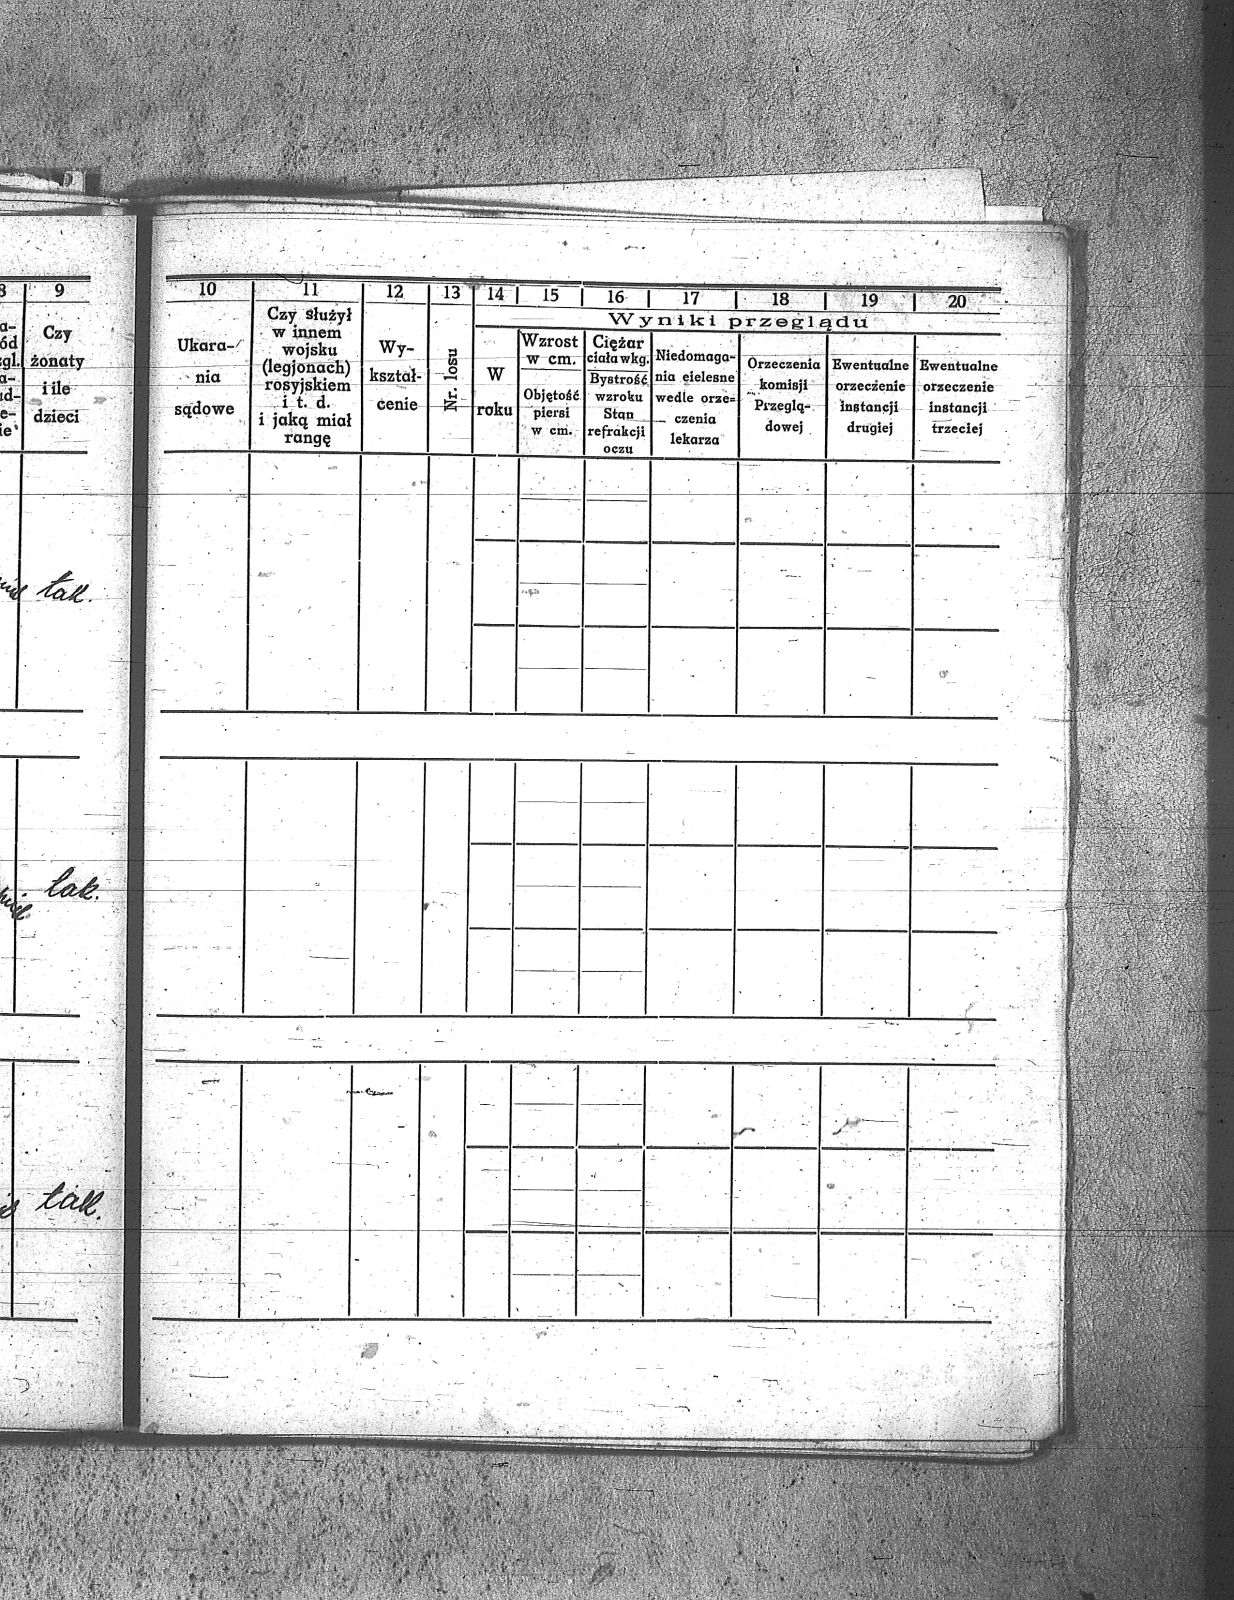 9
Czy
żonaty
i ile
dzieci
tak.
tak.
tak.
10
Ukara-
nia
sądowe
11
Czy służył
w innem
wojsku
(legjonach)
rosyjskiem
i t. d.
i jaką miał
rangę
12
Wy-
kształ-
cenie
13
Nr. losu
14 15 16 17 18 19 20
Wyniki przeglądu
W
roku
Wzrost
w cm.
Objętość
piersi
w cm.
Ciężar
ciała w kg.
Bystrość
wzroku
Stan
refrakcji
oczu
Niedomaga-
nia cielesne
wedle orze-
czenia
lekarza
Orzeczenia
komisji
Przeglą-
dowej
Ewentualne
orzeczenie
instancji
drugiej
Ewentualne
orzeczenie
instancji
trzeciej